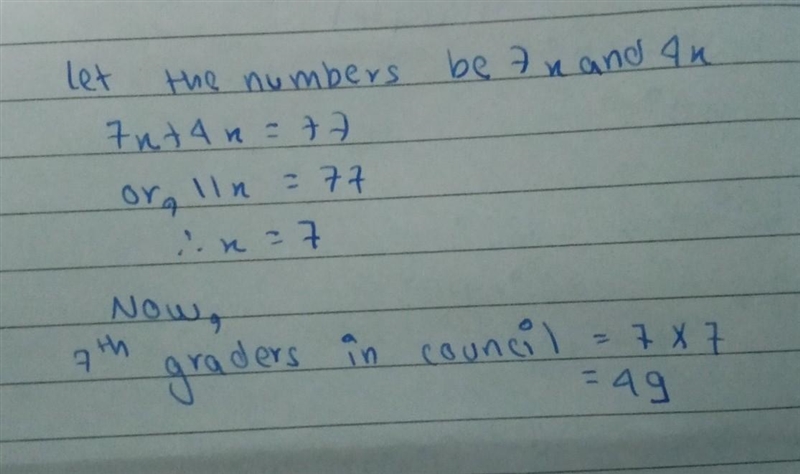 let the numbers be 7x and 4x
7x+4x = 77
or, 11x = 77
∴ x = 7
Now,
7th graders in council = 7 × 7
= 49